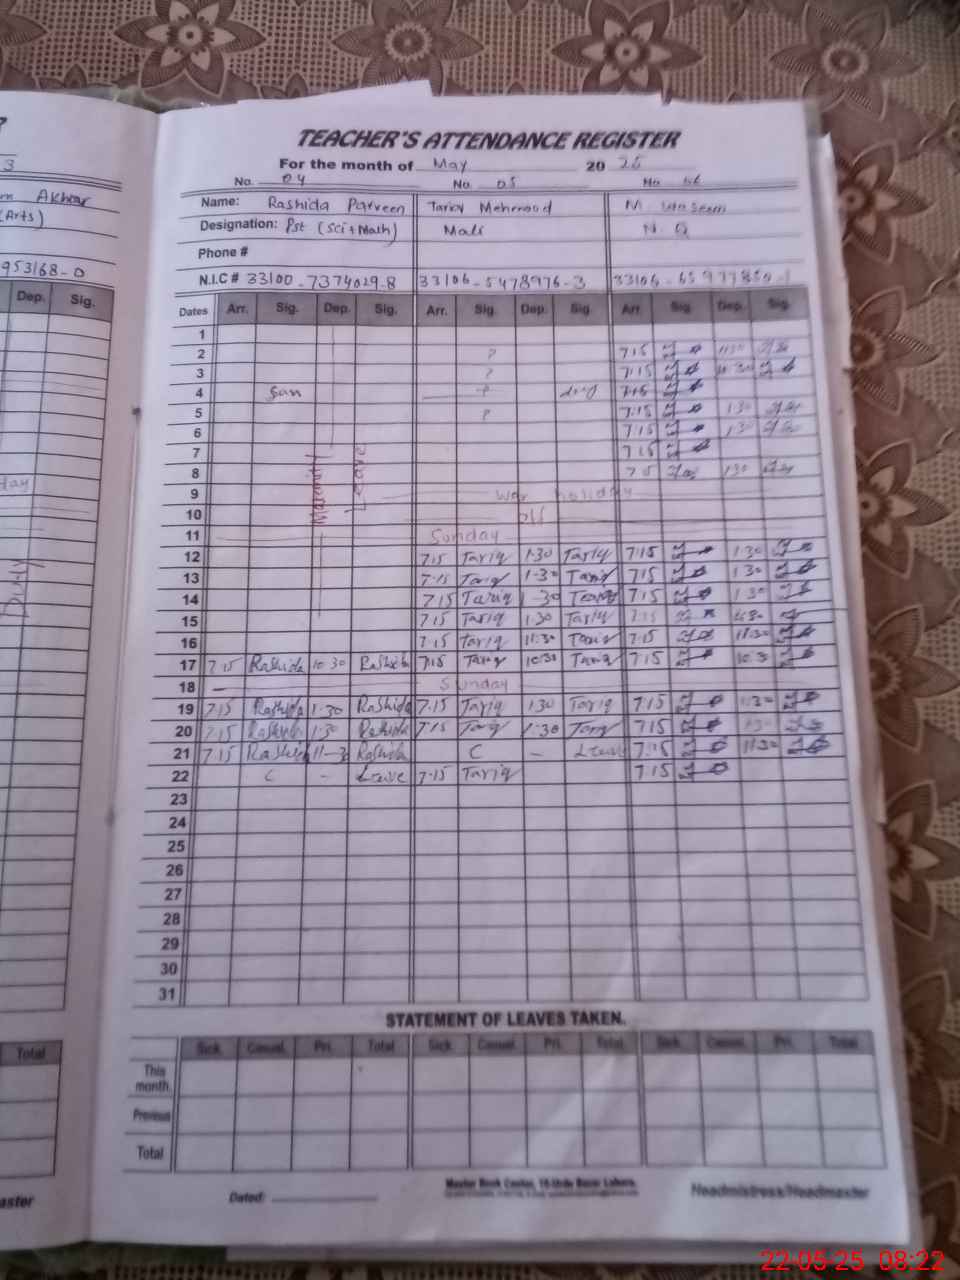 3
Akhtar
(Arts)
953168-0
Dep. Sig.
Duty
Total
TEACHER'S ATTENDANCE REGISTER
For the month of May 20 25
No. 04 No. 05 No.
Name: Rashida Parveen Tariq Mehmood M. Waseem
Designation: Pst (Sci+Math) Mali N.Q
Phone #
N.I.C # 33100-7374029-8 33106-5478976-3
Dates Arr. Sig. Dep. Sig. Arr. Sig. Dep. Sig. Arr. Sig. Dep. Sig.
1
2 P 7.15
3 P 7.15
4 Sun 7.15
5 P 7.15 1.30
6 7.15 1.30
7 7.15
8 7.15 1.30
Maternity Leave
9 War holiday
10 off
11 Sunday
12 7.15 Tariq 1.30 Tariq 7.15 1.30
13 7.15 Tariq 1-30 Tariq 7.15 1.30
14 7.15 Tariq 1-30 Tariq 7.15 1.30
15 7.15 Tariq 1.30 Tariq 7.15
16 7.15 Tariq 11.30 Tariq 7.15 11.30
17 7.15 Rashida 10.30 Rashida 7.15 Tariq 10.30 Tariq 7.15 10.30
18 Sunday
19 7.15 Rashida 1.30 Rashida 7.15 Tariq 1.30 Tariq 7.15
20 7.15 Rashida 1.30 Rashida 7.15 Tariq 1.30 Tariq 7.15 1.30
21 7.15 Rashida 11-3 Rashida C - Leave 7.15 11.30
22 C - Leave 7.15 Tariq 7.15
23
24
25
26
27
28
29
30
31
STATEMENT OF LEAVES TAKEN.
Sick. Casual. Pri. Total Sick. Casual. Pri. Total. Sick. Casual. Pri. Total
This month.
Previous
Total
Master Book Center, 16-Urdu Bazar Lahore.
Dated: Headmistress/Headmaster
22-05-25 08:22